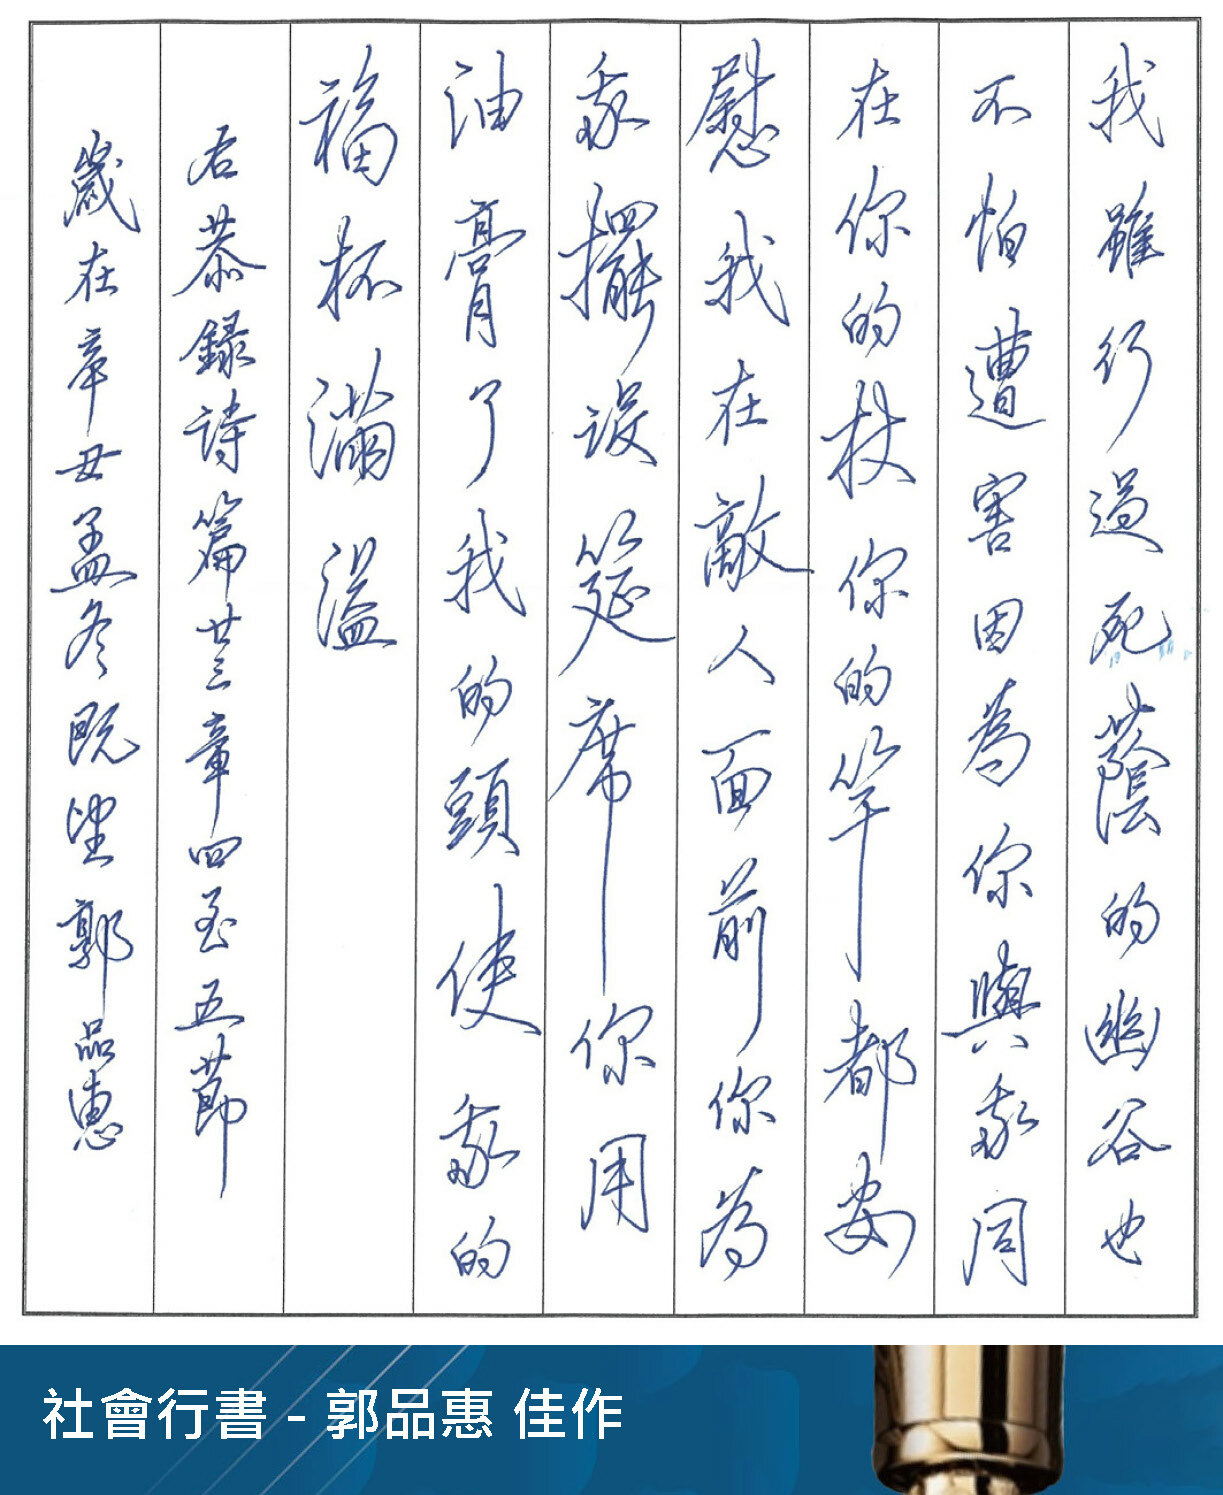 我雖行過死蔭的幽谷也
不怕遭害因為你與我同
在你的杖你的竿都安
慰我在敵人面前你為
我擺設筵席你用
油膏了我的頭使我的
福杯滿溢
右恭錄詩篇廿三章四至五節
歲在辛丑孟冬既望郭品惠
社會行書 - 郭品惠 佳作